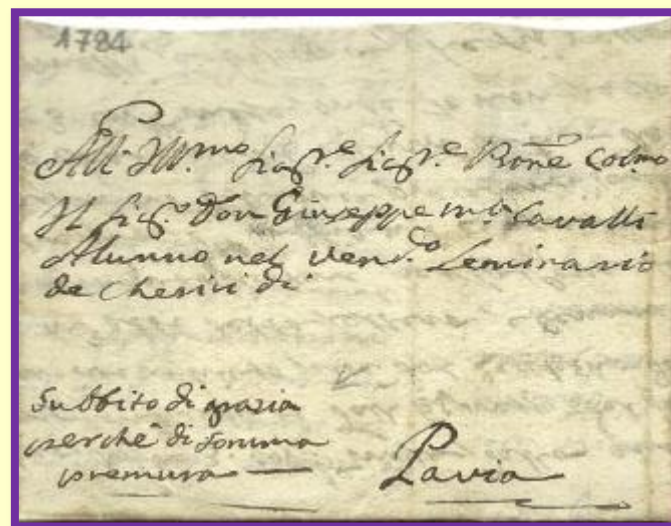 1784
All' Ill.mo Sig.r e Sig.r e P̄rone Col.mo
Il Sig.r Don Giuseppe M.a Cavalli
Alunno nel Ven.do Seminario
de Cherici di
Subbito di grazia
perché di somma
premura
Pavia